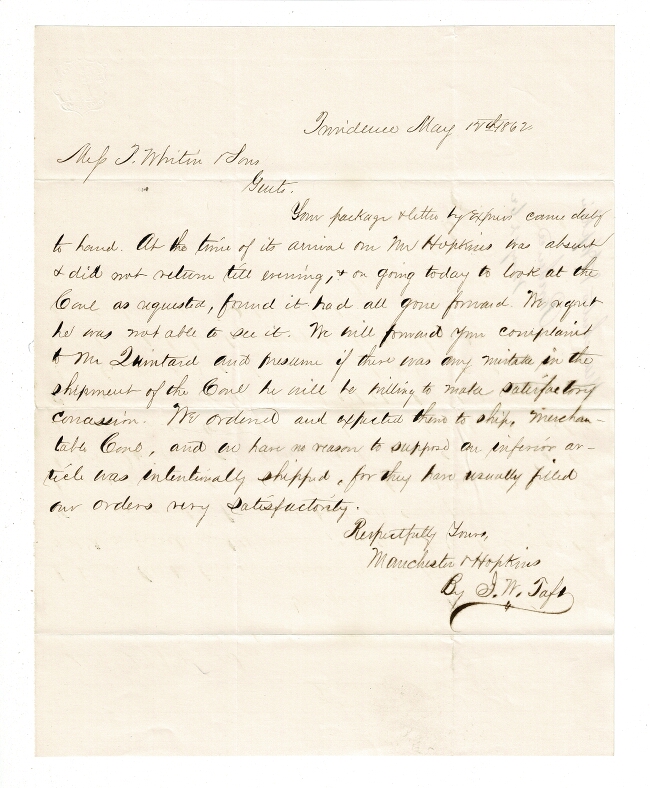 Providence May 12th 1862
Mess P. Whitin & Sons
Gents.
Your package & letter by Express came duly
to hand. At the time of its arrival our Mr Hopkins was absent
& did not return till evening, & on going today to look at the
Coal as requested, found it had all gone forward. We regret
he was not able to see it. We will forward your complaint
to Mr Quintard and presume if there was any mistake in the
shipment of the Coal he will be willing to make satisfactory
concession. We ordered and expected them to ship, merchan-
table Coal, and we have no reason to suppose an inferior ar-
ticle was intentionally shipped, for they have usually filled
our orders very satisfactorily.
Respectfully Yours,
Manchester & Hopkins
By J. W. Taft